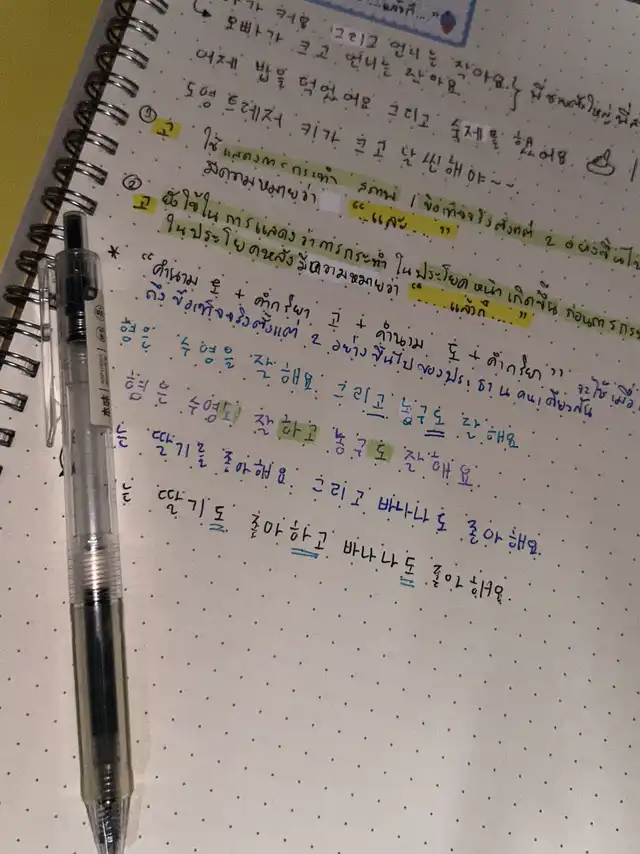 แล้วก็..."
커요. 그리고 언니는 작아요.
오빠가 크고 언니는 작아요. }
어제 밥을 먹었어요 그리고 숙제를 했어요
키가 크고 날씬해야~~
① 고 ใช้แสดงการกระทำ สภาพ / ข้อเท็จจริงตั้งแต่ 2 อย่างขึ้นไป
มีความหมายว่า "และ"
② 고 ยังใช้ในการแสดงว่าการกระทำ ในประโยคหน้า เกิดขึ้น ก่อนการกระ
ในประโยคหลัง มีความหมายว่า "แล้วก็..."
* "คำนาม 도 + คำกริยา 고 + คำนาม 도 + คำกริยา" จะใช้เมื่อ
ถึง ข้อเท็จจริงตั้งแต่ 2 อย่างขึ้นไปของประธานคนเดียวกัน
형은 수영을 잘해요 그리고 농구도 잘해요
형은 수영도 잘하고 농구도 잘해요.
는 딸기를 좋아해요 그리고 바나나도 좋아해요
는 딸기도 좋아하고 바나나도 좋아해요.